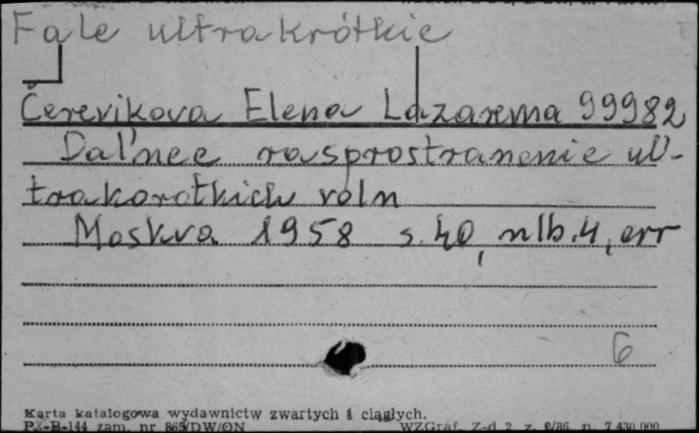 Fale ultrakrótkie
Čerevikova Elena Lazarevna 99982
Dal'nee rasprostranenie ul-
trakorotkich voln
Moskva 1958 s. 40, nlb. 4, err
6
Karta katalogowa wydawnictw zwartych i ciągłych.
Pu-B-144 zam. nr 865/DW/ON WZGraf. Z-d 2, z. 2/86, n. 7.430.000